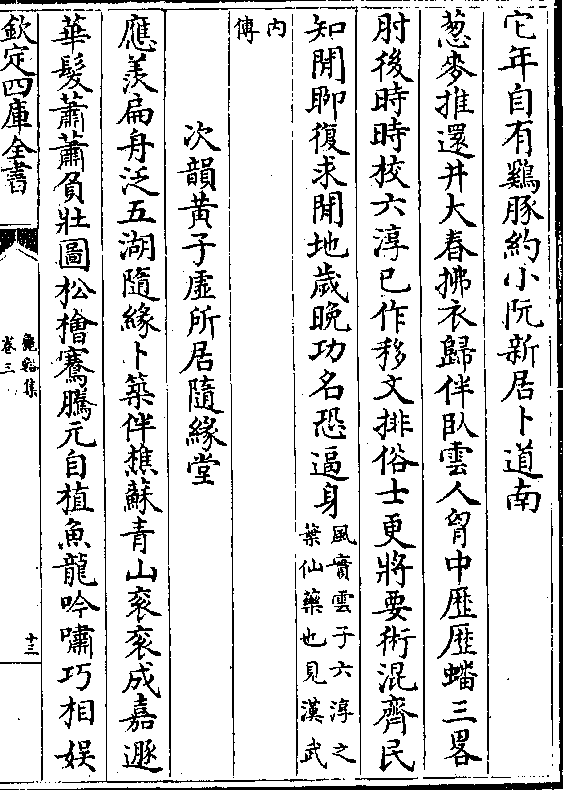 它年自有鷄豚約小阮新居卜道南
葱麥推還井大春拂衣歸伴臥雲人胷中歴歴蟠三畧
肘後時時校六淳已作移文排俗士更將要術混齊民
知閒聊復求閒地歲晚功名恐逼身風實雲子六淳之
葉仙藥也見漢武
内
傳
次韻黄子虚所居隨緣堂
應羨扁舟泛五湖隨緣卜築伴樵蘇青山衮衮成嘉遯
華髮蕭蕭負壯圖松檜騫騰元自植魚龍吟嘯巧相娱
欽定四庫全書
龜谿集
卷三
十三